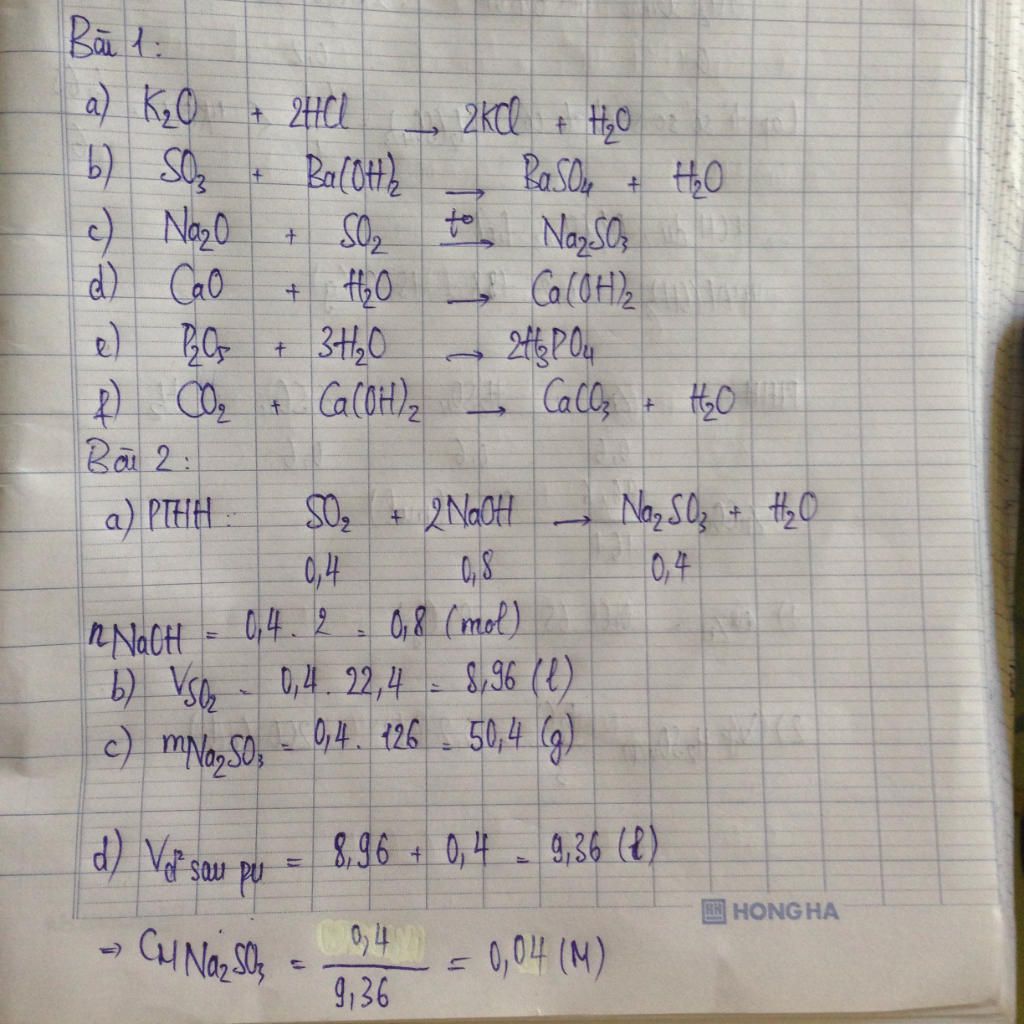 Bài 1:
a) K₂O + 2HCl → 2KCl + H₂O
b) SO₃ + Ba(OH)₂ → BaSO₄ + H₂O
c) Na₂O + SO₂ t° → Na₂SO₃
d) CaO + H₂O → Ca(OH)₂
e) P₂O₅ + 3H₂O → 2H₃PO₄
f) CO₂ + Ca(OH)₂ → CaCO₃ + H₂O
Bài 2:
a) PTHH: SO₂ + 2NaOH → Na₂SO₃ + H₂O
0,4 0,8 0,4
nNaOH = 0,4 . 2 = 0,8 (mol)
b) VSO₂ = 0,4 . 22,4 = 8,96 (l)
c) mNa₂SO₃ = 0,4 . 126 = 50,4 (g)
d) Vd² sau pư = 8,96 + 0,4 = 9,36 (l)
HONG HA
⇒ CM Na₂SO₃ = 0,4 / 9,36 = 0,04 (M)